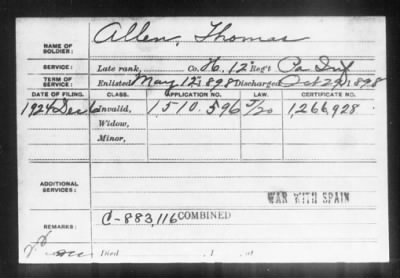 NAME OF SOLDIER: Allen, Thomas
SERVICE: Late rank, Co. H. 12" Reg't Pa Inf
TERM OF SERVICE: Enlisted May 12, 1898 Discharged Oct 29, 1898
DATE OF FILING. CLASS. APPLICATION NO. LAW. CERTIFICATE NO.
1924 Dec 6 Invalid, 1510.596 5/20 1,266,928
Widow,
Minor,
ADDITIONAL SERVICES:
WAR WITH SPAIN
REMARKS: C-883,116 COMBINED
Died , 1 , at